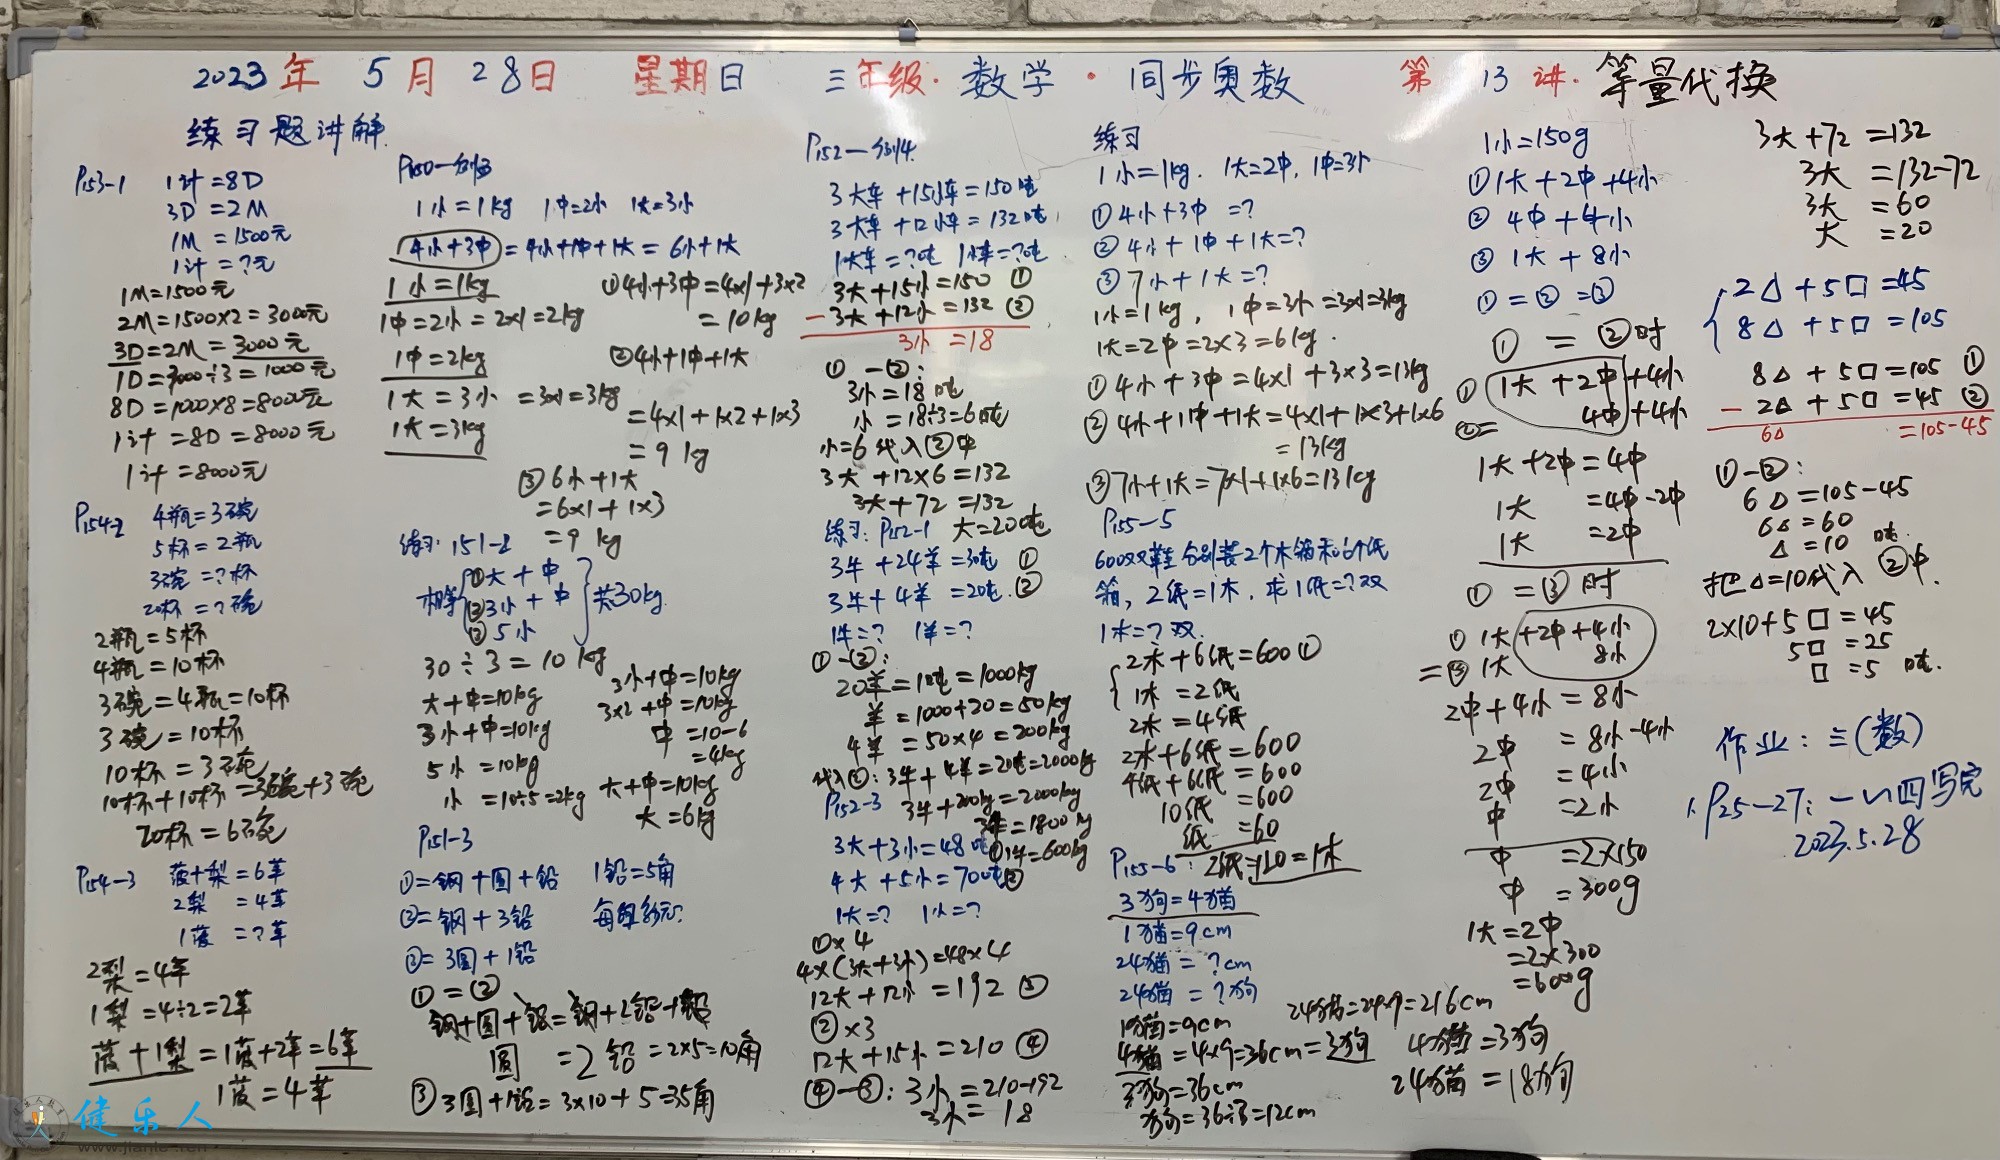 2023年 5月 28日 星期日 三年级·数学·同步奥数 第13讲·等量代换
练习题讲解
P153-1 1计=8D
3D=2M
1M=1500元
1计=?元
1M=1500元
2M=1500×2=3000元
3D=2M=3000元
1D=3000÷3=1000元
8D=1000×8=8000元
1计=8D=8000元
1计=8000元
P154-2 4瓶=3碗
5杯=2瓶
3碗=?杯
20杯=?碗
2瓶=5杯
4瓶=10杯
3碗=4瓶=10杯
3碗=10杯
10杯=3碗
10杯+10杯=3碗+3碗
20杯=6碗
P154-3 菠+梨=6苹
2梨=4苹
1菠=?苹
2梨=4苹
1梨=4÷2=2苹
菠+1梨=1菠+2苹=6苹
1菠=4苹
P150-例3
1小=1kg 1中=2小 1大=3小
4小+3中=4小+1中+1大=6小+1大
1小=1kg
1中=2小=2×1=2kg
1中=2kg
1大=3小=3×1=3kg
1大=3kg
①4小+3中=4×1+3×2
=10kg
②4小+1中+1大
=4×1+1×2+1×3
=9kg
③6小+1大
=6×1+1×3
=9kg
练习: 151-2
相等 ①大+中
②3小+中 共30kg.
③5小
30÷3=10kg
大+中=10kg
3小+中=10kg
5小=10kg
小=10÷5=2kg
3小+中=10kg
3×2+中=10kg
中=10-6
=4kg
大+中=10kg
大=6kg
P151-3
①=钢+圆+铅 1铅=5角
②=钢+3铅
③=3圆+1铅
①=②
钢+圆+铅=钢+2铅+铅
圆=2铅=2×5=10角
③3圆+1铅=3×10+5=35角
P152-例4.
3大车+15小车=150吨
3大车+12小车=132吨
1大车=?吨 1小车=?吨
3大+15小=150 ①
-3大+12小=132 ②
3小=18
①-②:
3小=18吨
小=18÷3=6吨
小=6代入②中
3大+12×6=132
3大+72=132
大=20吨
练习: P152-1
3牛+24羊=3吨 ①
3牛+4羊=2吨 ②
1牛=? 1羊=?
①-②:
20羊=1吨=1000kg
羊=1000÷20=50kg
4羊=50×4=200kg
代入②:3牛+4羊=2吨=2000kg
3牛+200kg=2000kg
3牛=1800kg
1牛=600kg
P152-3
3大+3小=48吨①
4大+5小=70吨②
1大=? 1小=?
①×4
4×(3大+3小)=48×4
12大+12小=192 ③
②×3
12大+15小=210 ④
④-③:3小=210-192
3小=18
练习
1小=1kg. 1大=2中, 1中=3小
①4小+3中=?
②4小+1中+1大=?
③7小+1大=?
1小=1kg, 1中=3小=3×1=3kg
1大=2中=2×3=6kg.
①4小+3中=4×1+3×3=13kg
②4小+1中+1大=4×1+1×3+1×6
=13kg
③7小+1大=7×1+1×6=13kg
P155-5
600双鞋分别装2个木箱和6个纸
箱, 2纸=1木, 求1纸=?双
1木=?双.
2木+6纸=600①
1木=2纸
2木=4纸
2木+6纸=600
4纸+6纸=600
10纸=600
纸=60
2纸=120=1木
P155-6:
3狗=4猫
1猫=9cm
24猫=?cm
24猫=?狗
1猫=9cm
4猫=4×9=36cm=3狗
3狗=36cm
狗=36÷3=12cm
24猫=24×9=216cm
4猫=3狗
24猫=18狗
1小=150g
①1大+2中+4小
②4中+4小
③1大+8小
①=②=③
①=②时
①1大+2中+4小
②=4中+4小
1大+2中=4中
1大=4中-2中
1大=2中
①=③时
①1大+2中+4小
=③1大 8小
2中+4小=8小
2中=8小-4小
2中=4小
中=2小
中=2×150
中=300g
1大=2中
=2×300
=600g
3大+72=132
3大=132-72
3大=60
大=20
2△+5□=45
8△+5□=105
8△+5□=105 ①
-2△+5□=45 ②
6△=105-45
①-②:
6△=105-45
6△=60
△=10吨.
把△=10代入②中.
2×10+5□=45
5□=25
□=5吨.
作业:三(数)
1.P25-27:一~四写完
2023.5.28
健乐人